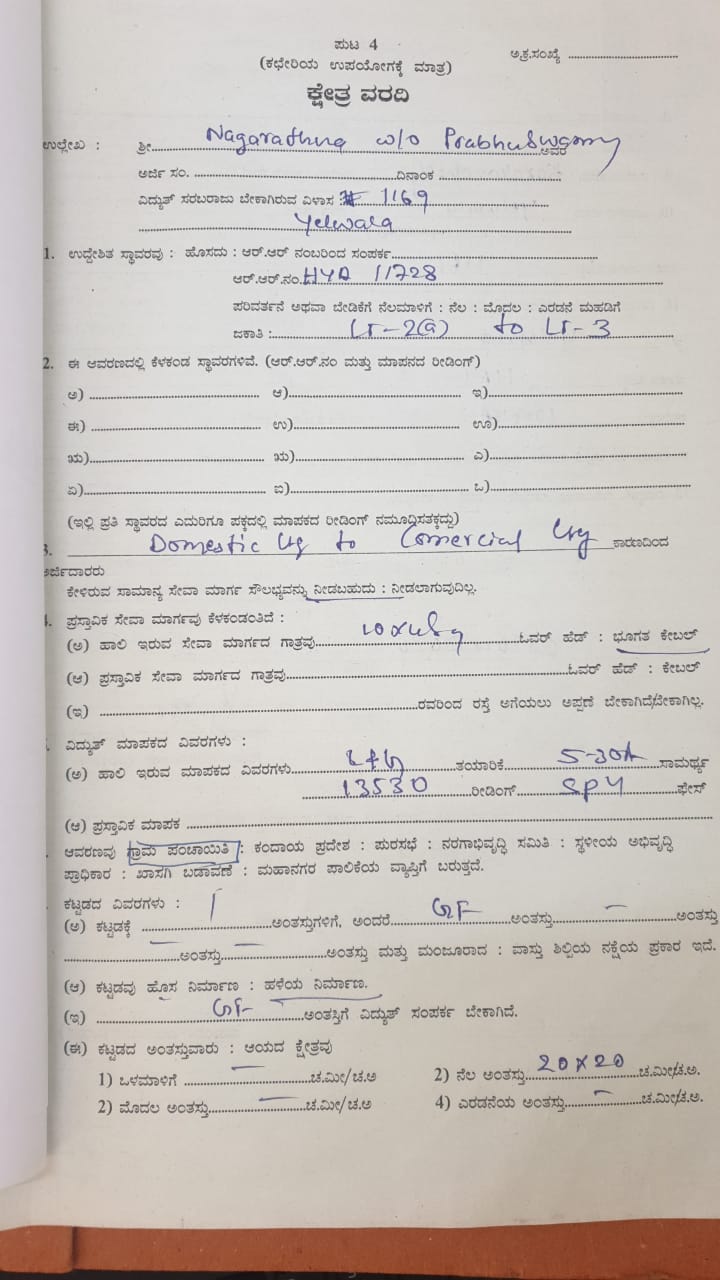 ಪುಟ 4
(ಕಛೇರಿಯ ಉಪಯೋಗಕ್ಕೆ ಮಾತ್ರ)
ಅ.ಕ್ರ.ಸಂಖ್ಯೆ ........................
ಕ್ಷೇತ್ರ ವರದಿ
ಉಲ್ಲೇಖ : ಶ್ರೀ. Nagarathna w/o Prabhuswamy ಅವರ
ಅರ್ಜಿ ಸಂ. ........................ದಿನಾಂಕ ........................
ವಿದ್ಯುತ್ ಸರಬರಾಜು ಬೇಕಾಗಿರುವ ವಿಳಾಸ # 1169
Yelwala
1. ಉದ್ದೇಶಿತ ಸ್ಥಾವರವು : ಹೊಸದು : ಆರ್.ಆರ್ ನಂಬರಿಂದ ಸಂಪರ್ಕ........................
ಆರ್.ಆರ್.ನಂ. HYD 11728
ಪರಿವರ್ತನೆ ಅಥವಾ ಬೇಡಿಕೆಗೆ ನೆಲಮಾಳಿಗೆ : ನೆಲ : ಮೊದಲ : ಎರಡನೆ ಮಹಡಿಗೆ
ಜಕಾತಿ : LT-2(a) to LT-3
2. ಈ ಆವರಣದಲ್ಲಿ ಕೆಳಕಂಡ ಸ್ಥಾವರಗಳಿವೆ. (ಆರ್.ಆರ್.ನಂ ಮತ್ತು ಮಾಪನದ ರೀಡಿಂಗ್)
ಅ)........................ ಆ)........................ ಇ)........................
ಈ)........................ ಉ)........................ ಊ)........................
ಋ)........................ ೠ)........................ ಎ)........................
ಏ)........................ ಐ)........................ ಒ)........................
(ಇಲ್ಲಿ ಪ್ರತಿ ಸ್ಥಾವರದ ಎದುರಿಗೂ ಪಕ್ಕದಲ್ಲಿ ಮಾಪಕದ ರೀಡಿಂಗ್ ನಮೂದಿಸತಕ್ಕದ್ದು)
3. Domestic to Comercial ಕಾರಣದಿಂದ
ಅರ್ಜಿದಾರರು
ಕೇಳಿರುವ ಸಾಮಾನ್ಯ ಸೇವಾ ಮಾರ್ಗ ಸೌಲಭ್ಯವನ್ನು ನೀಡಬಹುದು : ನೀಡಲಾಗುವುದಿಲ್ಲ.
ಪ್ರಸ್ತಾವಿಕ ಸೇವಾ ಮಾರ್ಗವು ಕೆಳಕಂಡಂತಿದೆ :
(ಅ) ಹಾಲಿ ಇರುವ ಸೇವಾ ಮಾರ್ಗದ ಗಾತ್ರವು........................ಓವರ್ ಹೆಡ್ : ಭೂಗತ ಕೇಬಲ್
(ಆ) ಪ್ರಸ್ತಾವಿಕ ಸೇವಾ ಮಾರ್ಗದ ಗಾತ್ರವು........................ಓವರ್ ಹೆಡ್ : ಕೇಬಲ್
(ಇ) ........................ರವರಿಂದ ರಸ್ತೆ ಅಗೆಯಲು ಅಪ್ಪಣೆ ಬೇಕಾಗಿದೆ/ಬೇಕಾಗಿಲ್ಲ.
ವಿದ್ಯುತ್ ಮಾಪಕದ ವಿವರಗಳು :
(ಅ) ಹಾಲಿ ಇರುವ ಮಾಪಕದ ವಿವರಗಳು L&G ತಯಾರಿಕೆ 5-30A ಸಾಮರ್ಥ್ಯ
13530 ರೀಡಿಂಗ್ ಫೇಸ್
(ಆ) ಪ್ರಸ್ತಾವಿಕ ಮಾಪಕ ........................
ಆವರಣವು ಗ್ರಾಮ ಪಂಚಾಯಿತಿ : ಕಂದಾಯ ಪ್ರದೇಶ : ಪುರಸಭೆ : ನರಗಾಭಿವೃದ್ಧಿ ಸಮಿತಿ : ಸ್ಥಳೀಯ ಅಭಿವೃದ್ಧಿ
ಪ್ರಾಧಿಕಾರ : ಖಾಸಗಿ ಬಡಾವಣೆ : ಮಹಾನಗರ ಪಾಲಿಕೆಯ ವ್ಯಾಪ್ತಿಗೆ ಬರುತ್ತದೆ.
ಕಟ್ಟಡದ ವಿವರಗಳು :
(ಅ) ಕಟ್ಟಡಕ್ಕೆ 1 ಅಂತಸ್ತುಗಳಿಗೆ, ಅಂದರೆ GF ಅಂತಸ್ತು — ಅಂತಸ್ತು
— ಅಂತಸ್ತು — ಅಂತಸ್ತು ಮತ್ತು ಮಂಜೂರಾದ : ವಾಸ್ತು ಶಿಲ್ಪಿಯ ನಕ್ಷೆಯ ಪ್ರಕಾರ ಇದೆ.
(ಆ) ಕಟ್ಟಡವು ಹೊಸ ನಿರ್ಮಾಣ : ಹಳೆಯ ನಿರ್ಮಾಣ.
(ಇ) GF ಅಂತಸ್ತಿಗೆ ವಿದ್ಯುತ್ ಸಂಪರ್ಕ ಬೇಕಾಗಿದೆ.
(ಈ) ಕಟ್ಟಡದ ಅಂತಸ್ತುವಾರು : ಆಯದ ಕ್ಷೇತ್ರವು
1) ಒಳಮಾಳಿಗೆ — ಚ.ಮೀ/ಚ.ಅ 2) ನೆಲ ಅಂತಸ್ತು 20 X 20 ಚ.ಮೀ/ಚ.ಅ.
2) ಮೊದಲ ಅಂತಸ್ತು — ಚ.ಮೀ/ಚ.ಅ 4) ಎರಡನೆಯ ಅಂತಸ್ತು — ಚ.ಮೀ/ಚ.ಅ.